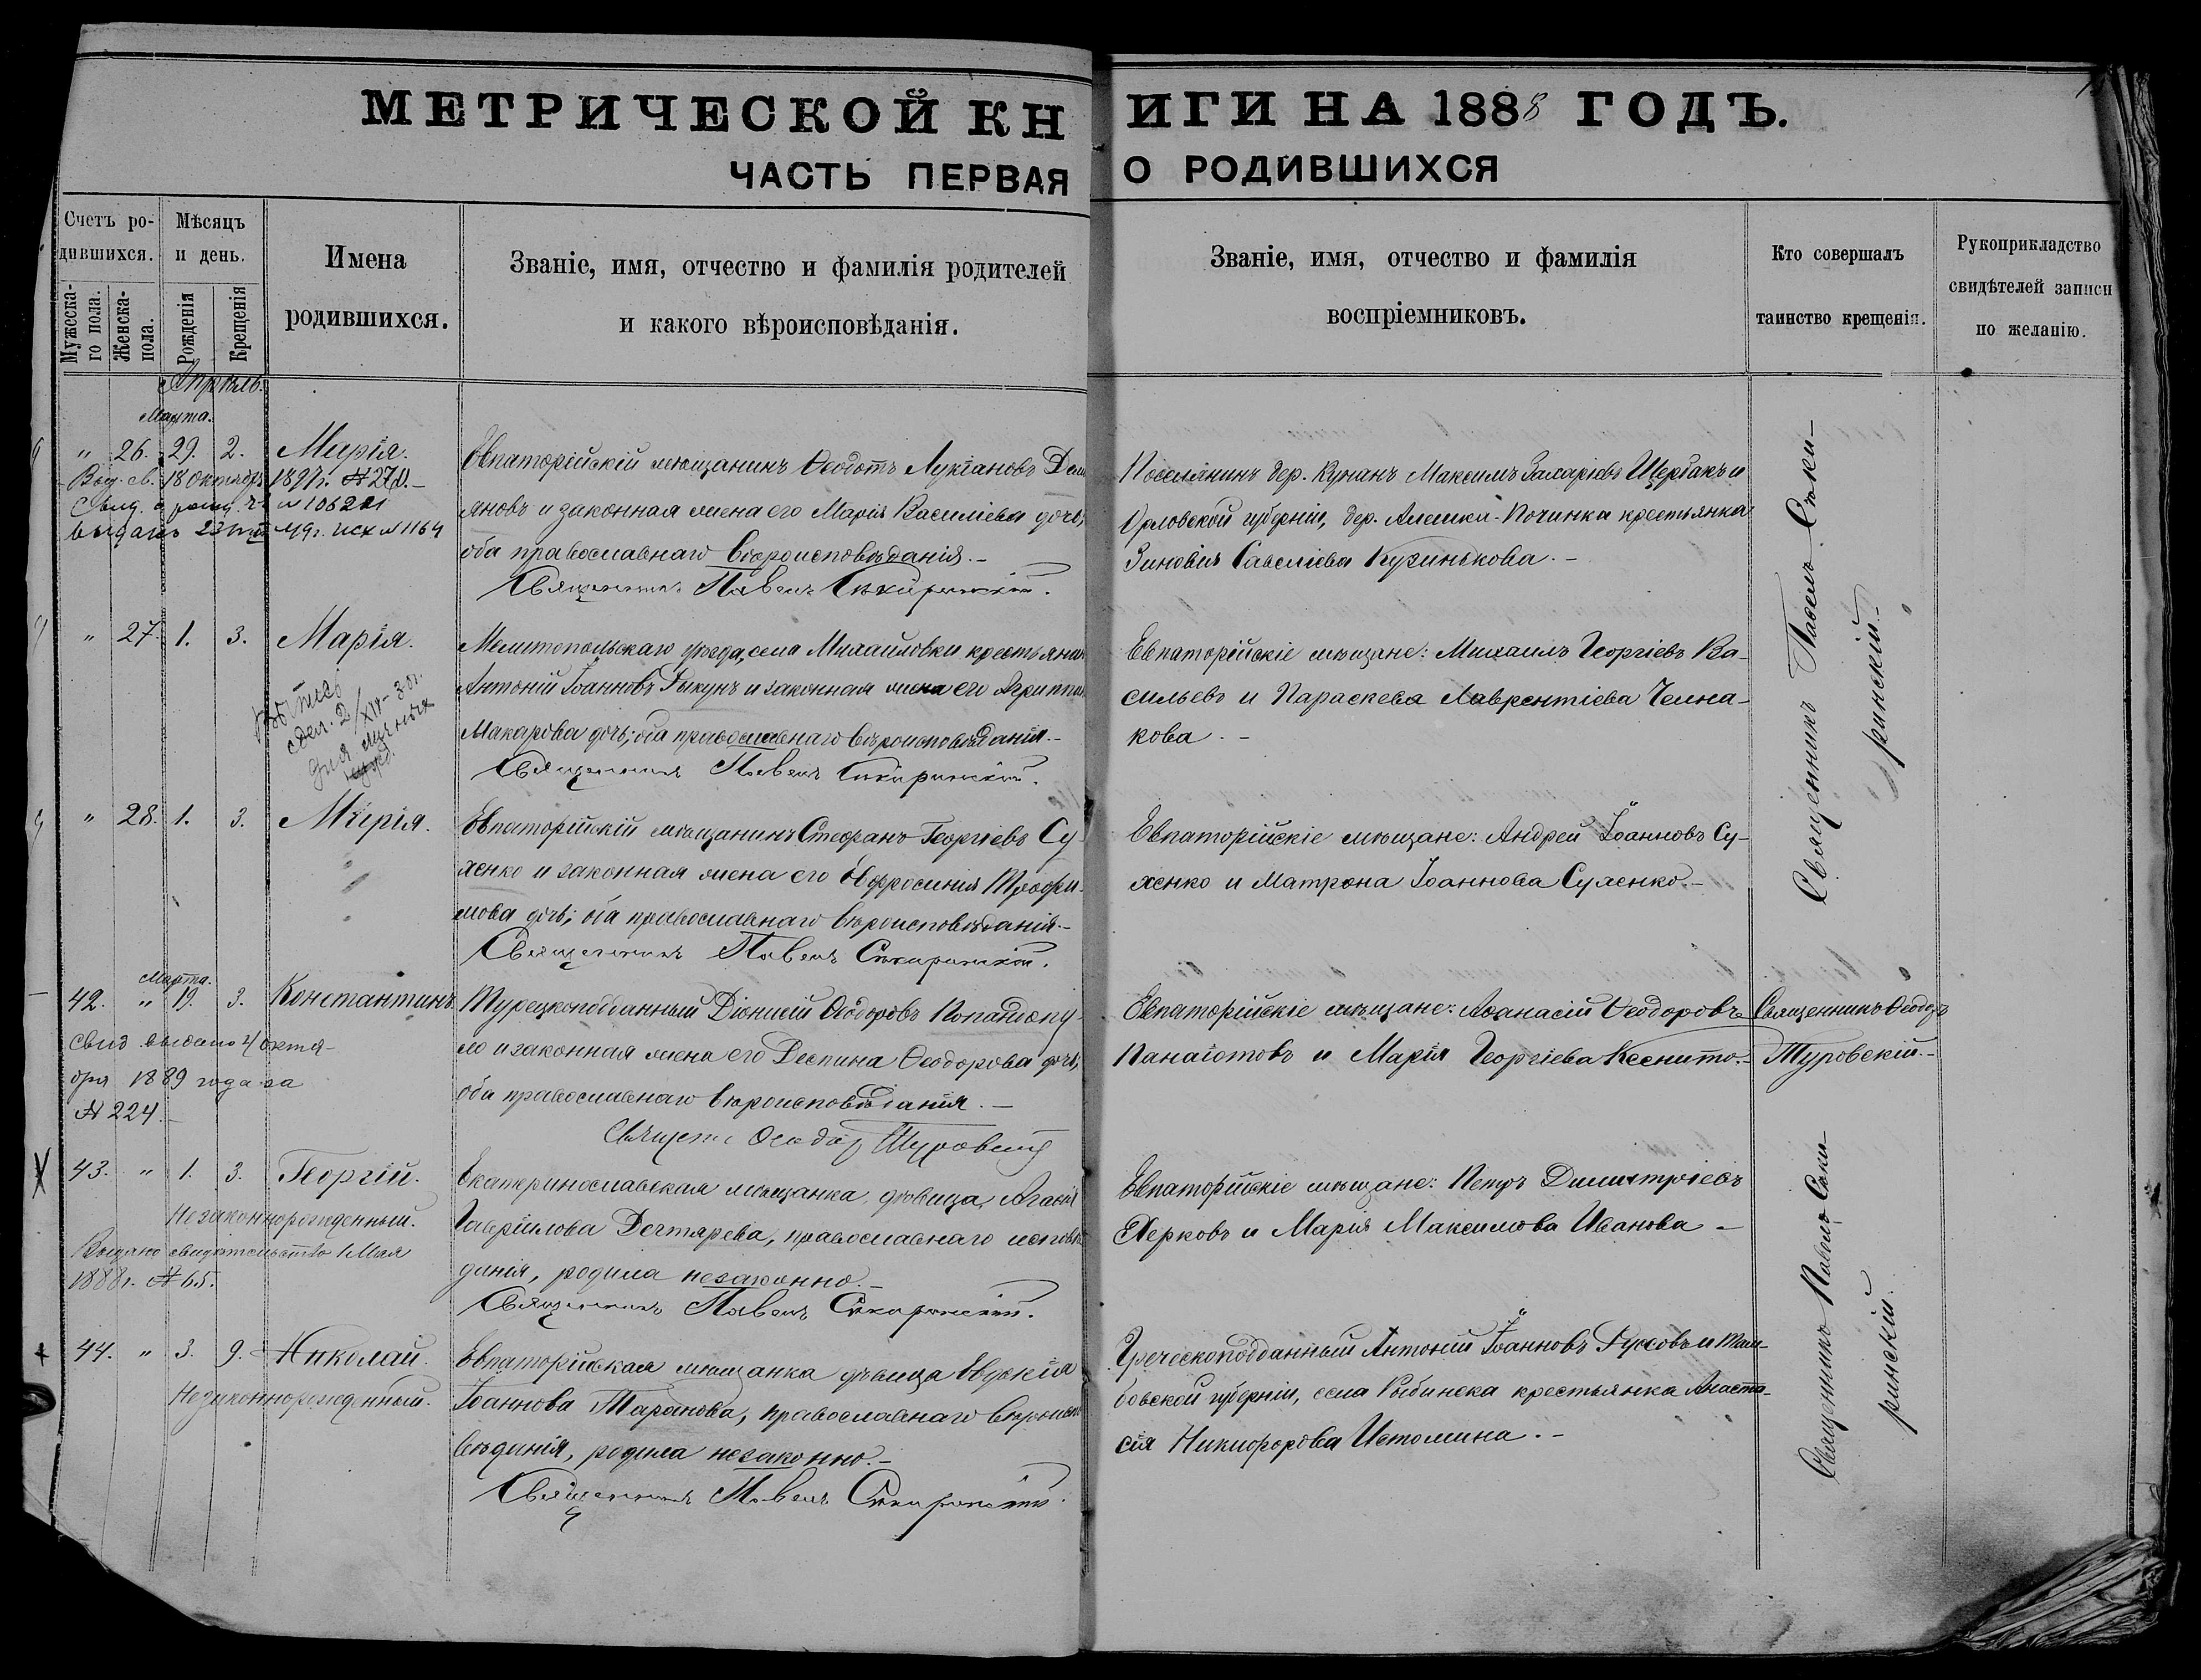 МЕТРИЧЕСКОЙ КН
ИГИ НА 1888 ГОДЪ.
ЧАСТЬ ПЕРВАЯ
О РОДИВШИХСЯ
Счетъ ро-
дившихся.
Мужеска-
го пола.
Женска-
пола.
Мѣсяцъ
и день.
Рожденія
Крещенія
Имена
родившихся.
Званіе, имя, отчество и фамилія родителей
и какого вѣроисповѣданія.
Званіе, имя, отчество и фамилія
воспріемниковъ.
Кто совершалъ
таинство крещенія.
Рукоприкладство
свидѣтелей записи
по желанію.
Апрѣль.
Марта.
" 26. 29. 2. Марія.
Выд. св. 18 Октября 1897г. № 270.-
№ 106221
выданъ 23 19г. исх №1164
Евпаторійскій мѣщанинъ Ѳеодотъ Лукіановъ Дем
яновъ и законная жена его Марія Василіева дочь;
оба православнаго вѣроисповѣданія.-
Священникъ Павелъ Сѣкиринскій.
Поселянинъ дер. Кунанъ Максимъ Захаріевъ Щербакъ и
Орловской губерніи, дер. Алешки-Починка крестьянка
Зиновія Савеліева Кузинькова.-
Священникъ Павелъ Сѣки-
ринскій.-
" 27. 1. 3. Марія.
Мелитопольскаго уѣзда, села Михайловки крестьянин
Антоній Іоанновъ Рыкунъ и законная жена его Агриппин
Макарова дочь; оба православнаго вѣроисповѣданія.-
Священникъ Павелъ Сѣкиринскій.
Евпаторійскіе мѣщане: Михаилъ Георгіевъ Ва-
сильевъ и Параскева Лаврентіева Челна-
кова.-
" 28. 1. 3. Марія.
Евпаторійскій мѣщанинъ Стефанъ Георгіевъ Су-
хенко и законная жена его Евфросинія Трофи-
мова дочь; оба православнаго вѣроисповѣданія.-
Священникъ Павелъ Сѣкиринскій.
Евпаторійскіе мѣщане: Андрей Іоанновъ Су-
хенко и Матрона Іоаннова Сухенко.-
Марта.
42. " 19. 3. Константинъ
свид выдано 4 октя-
бря 1889 года за
№ 224.-
Турецкоподданный Діонисій Ѳеодоровъ Попандопу-
ло и законная жена его Деспина Ѳеодорова дочь,
оба православнаго вѣроисповѣданія.-
Священ. Ѳеодоръ Туровскій
Евпаторійскіе мѣщане: Аѳанасій Ѳеодоровъ
Панаіотовъ и Марія Георгіева Кеснито.-
Священникъ Ѳеодоръ
Туровскій.-
43. " 1. 3. Георгій.
Незаконнорожденный.
Выдано свидѣтельство 1 Мая
1888г. № 65.
Екатеринославская мѣщанка, дѣвица, Агаѳія
Гавріилова Дегтярева, православнаго исповѣ
данія, родила незаконно.-
Священникъ Павелъ Сѣкиринскій.
Евпаторійскіе мѣщане: Петръ Димитріевъ
Херковъ и Марія Максимова Иванова -
Священникъ Павелъ Сѣки-
ринскій.
44. " 3. 9. Николай.
Незаконнорожденный.
Евпаторійская мѣщанка дѣвица Евдокія
Іоаннова Таранова, православнаго вѣроиспо
вѣданія, родила незаконно.-
Священникъ Павелъ Сѣкиринскій.
Греческоподданный Антоній Іоанновъ Гуссовъ и Там-
бовской губерніи, села Рыбинска крестьянка Анаста-
сія Никифорова Истомина.-